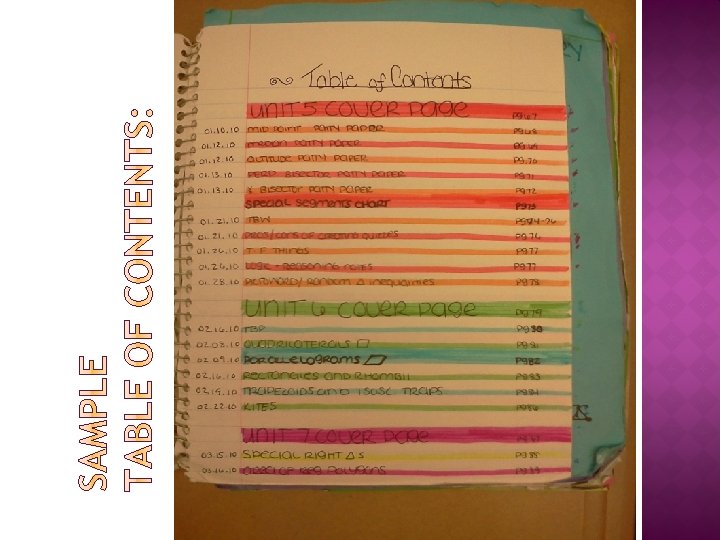 SAMPLE
TABLE OF CONTENTS:
Table of Contents
UNIT 5 COVER PAGE pg 67
01.10.10 MID POINT PATTY PAPER pg 68
01.12.10 MEDIAN PATTY PAPER pg 69
01.12.10 ALTITUDE PATTY PAPER pg 70
01.13.10 PERP BISECTOR PATTY PAPER pg 71
01.13.10 BISECTOR PATTY PAPER pg 72
SPECIAL SEGMENTS CHART pg 73
01.21.10 TBW pg 74-76
01.21.10 PROS/CONS OF CREATING QUIZZES pg 76
01.26.10 T-F THINGS pg 77
01.26.10 LOGIC + REASONING NOTES pg 77
01.28.10 RANDOM Δ INEQUALITIES pg 78
UNIT 6 COVER PAGE pg 79
02.16.10 TBP pg 80
02.08.10 QUADRILATERALS pg 81
02.09.10 PARALLELOGRAMS ▱ pg 82
02.16.10 RECTANGLES AND RHOMBII pg 83
02.19.10 TRAPEZOIDS AND ISOSC. TRAPS pg 84
02.22.10 KITES pg 86
UNIT 7 COVER PAGE
03.15.10 SPECIAL RIGHT Δ S pg 88
03.16.10 AREA OF REG POLYGONS pg 89